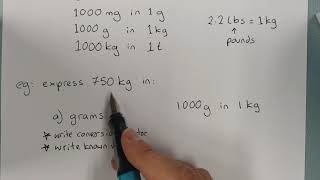 1000mg in 1g
1000g in 1kg
1000kg in 1t
2.2 lbs = 1kg
pounds
eg: express 750kg in:
a) grams
1000g in 1kg
* write conversion
* write known